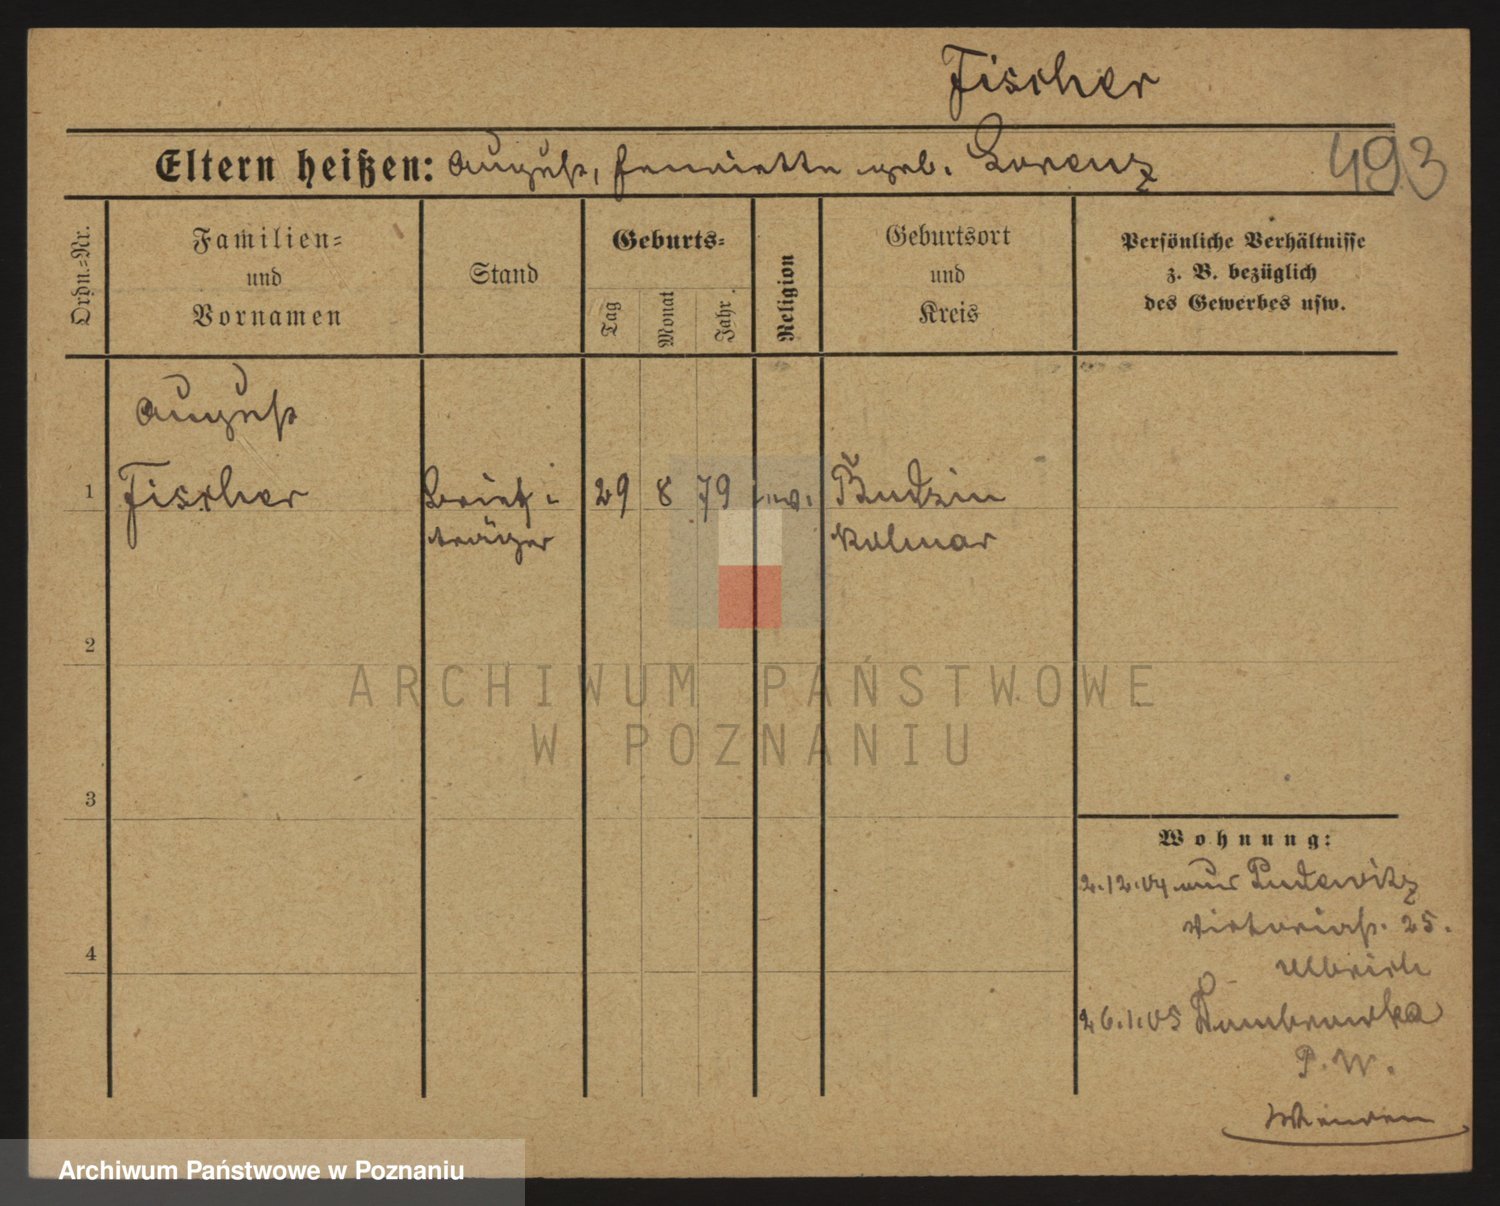 Fischer
Eltern heißen: August, Henriette geb. Lorenz
493
Ordn.=Nr.
Familien=
und
Vornamen
Stand
Geburts=
Tag
Monat
Jahr
Religion
Geburtsort
und
Kreis
Persönliche Verhältnisse
z. B. bezüglich
des Gewerbes usw.
August
1 Fischer Brief- 29 8 79 ev. Budzin
träger Kolmar
2
3
4
Wohnung:
2.12.04 aus Pudewitz
Viktoriastr. 25.
Ulbrich
26.1.05 Dombrowka
P. W.
ARCHIWUM PAŃSTWOWE
W POZNANIU
Archiwum Państwowe w Poznaniu